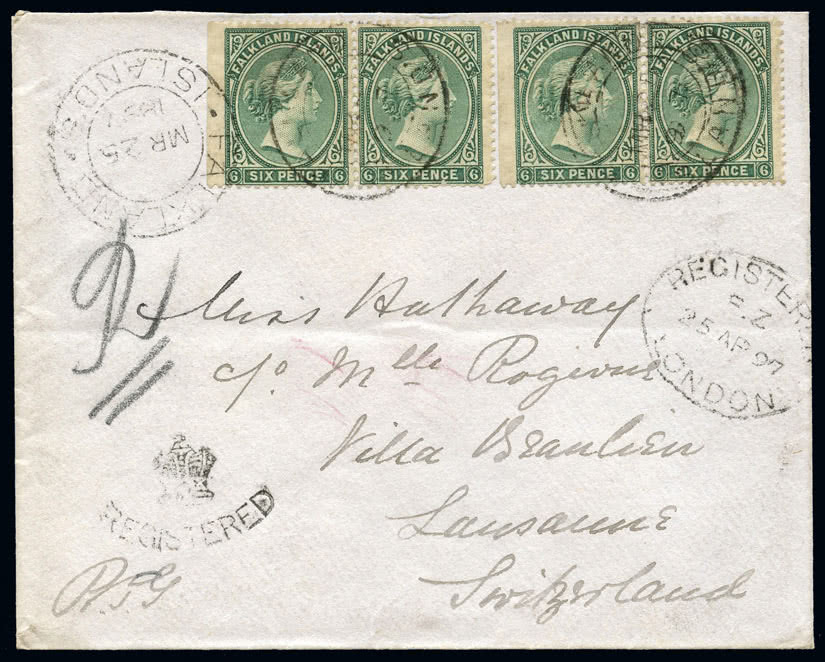 FALKLAND ISLANDS FALKLAND ISLANDS FALKLAND ISLANDS FALKLAND ISLANDS
6 SIX PENCE 6 6 SIX PENCE 6 6 SIX PENCE 6 6 SIX PENCE 6
FALKLAND ISLANDS
MR 25
1897
REGISTERED
25 AP 97
LONDON
Miss Hathaway
c/o Mlle
Villa Beaulieu
Lausanne
Switzerland
REGISTERED